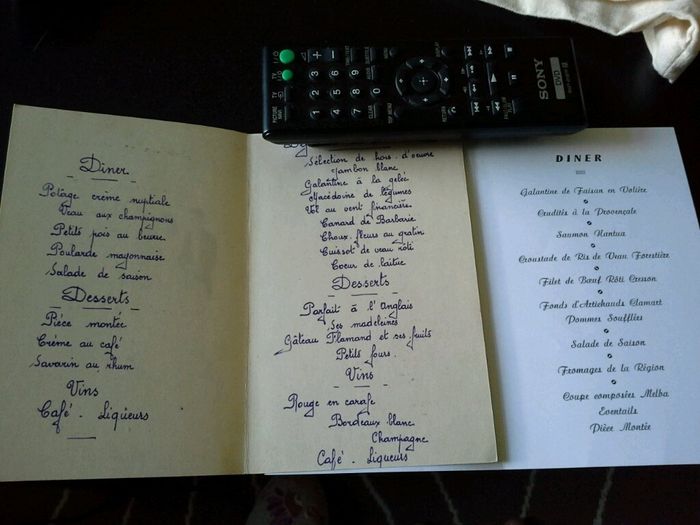 Diner
Potage crème nuptiale
Veau aux champignons
Petits pois au beurre
Poularde mayonnaise
Salade de saison
Desserts
Pièce montée
Crème au café
Savarin au rhum
Vins
Café - Liqueurs
Sélection de hors-d'œuvre
Jambon blanc
Galantine à la gelée
Macédoine de légumes
Vol au vent financière
Canard de Barbarie
Choux-fleurs au gratin
Cuissot de veau rôti
Coeur de laitue
Desserts
Parfait à l'Anglais
Ses madeleines
Gâteau Flamand et ses fruits
Petits fours.
Vins
Rouge en carafe
Bordeaux blanc
Champagne
Café. Liqueurs
DINER
Galantine de Faisan en Volière
Crudités à la Provençale
Saumon Nantua
Croustade de Ris de Veau Forestière
Filet de Bœuf Rôti Cresson
Fonds d'Artichauds Clamart
Pommes Soufflées
Salade de Saison
Fromages de la Région
Coupe composées Melba
Eventails
Pièce Montée
SONY
DVD